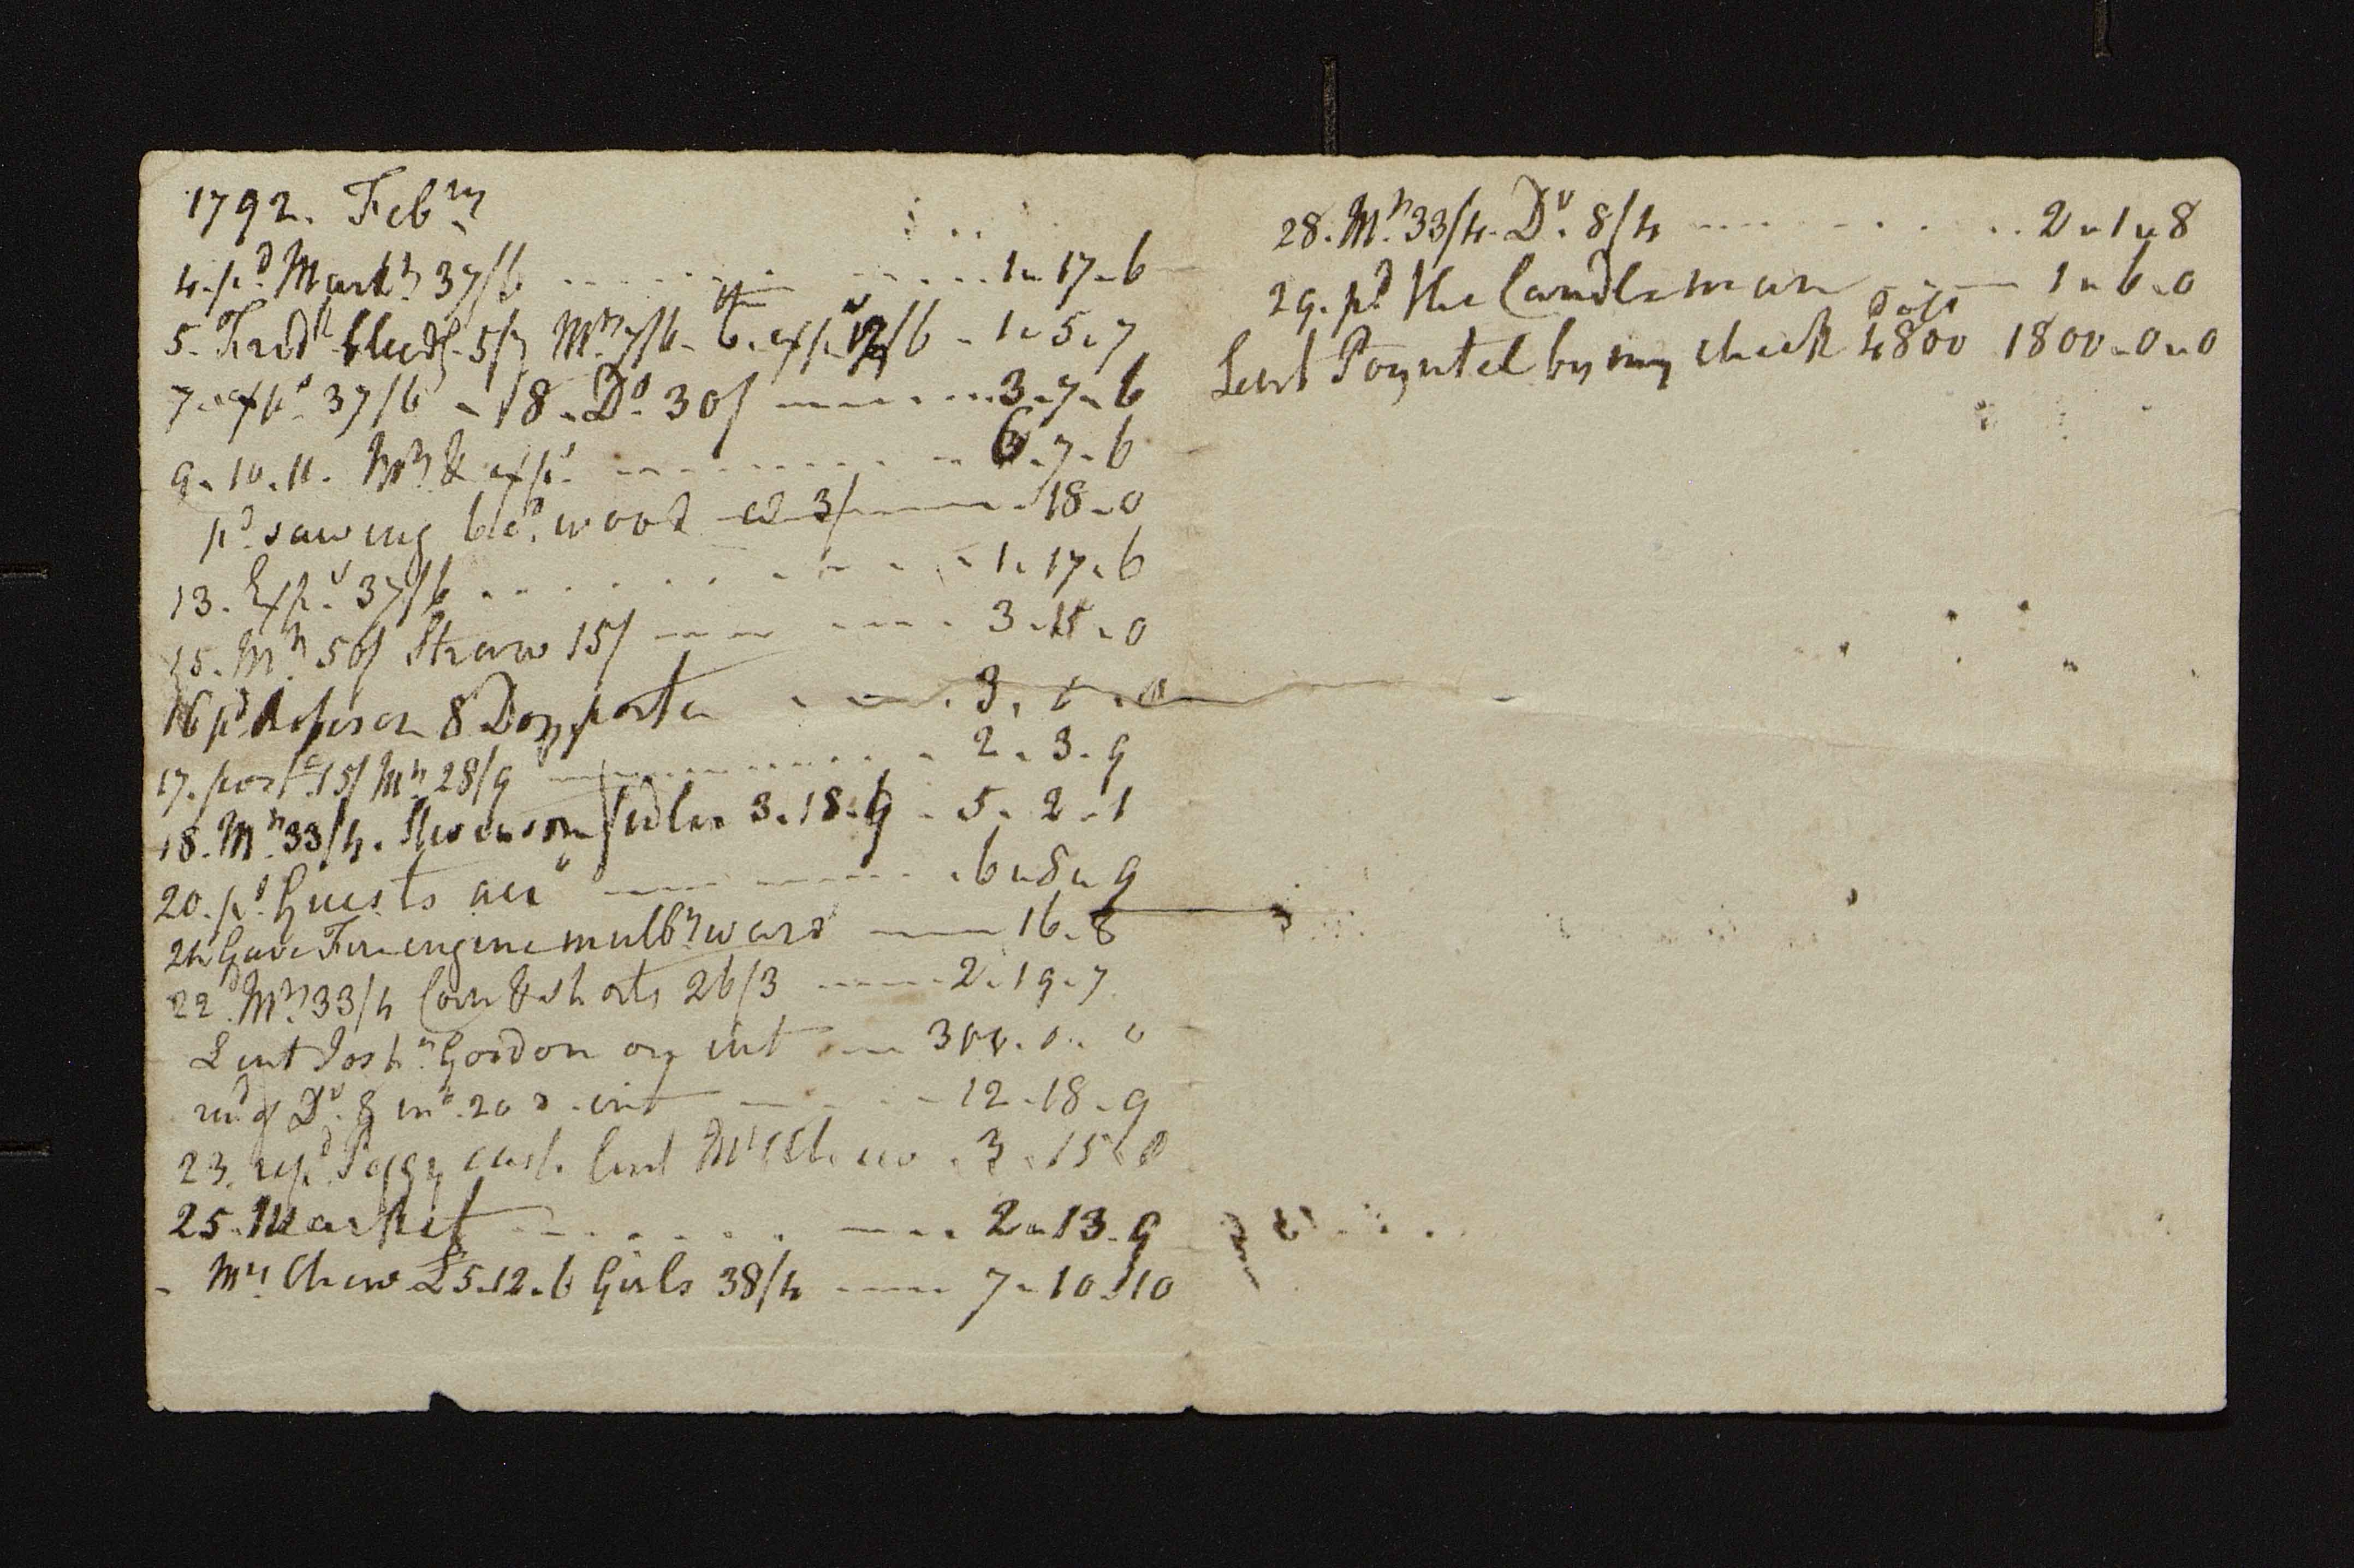 1792. Febry
4. pd Markt 37/6 1-17-6
5. Fredk 5/7 My 7/6 - 6. expo 12/6 - 1-5-7
7. expo 37/6 - 18. Do 30/ 3-7-6
9. 10. 11. My & expo 6-7-6
pd sawing wood 3/ 18-0
13. Expo 37/6 1-17-6
15. My 50/ Straw 15/ 3-15-0
16 pd 8 Doz porter 3.
17. post 15/ My 28/9 2-3-9
18. My 33/4. 3.18.9 - 5-2-1
20. pd Guests acco 6-8-9
21 Gave Fire engine mulby ward 16-8
22d My 33/4 Corn & shorts 26/3 2-19-7
Lent Gordon on int 300-0-0
recd of Do 8 mo 20 d. int 12-18-9
23. repd Peggy cash lent Mrs Chew 3-15-0
25. Market 2-13-9
- Mrs Chew £5.12.6 Girls 38/4 7-10-10
28. My 33/4. Do. 8/4 2-1-8
29. pd the Candleman 1-6-0
Lent Poyntel by my check 4800 dolls 1800-0-0